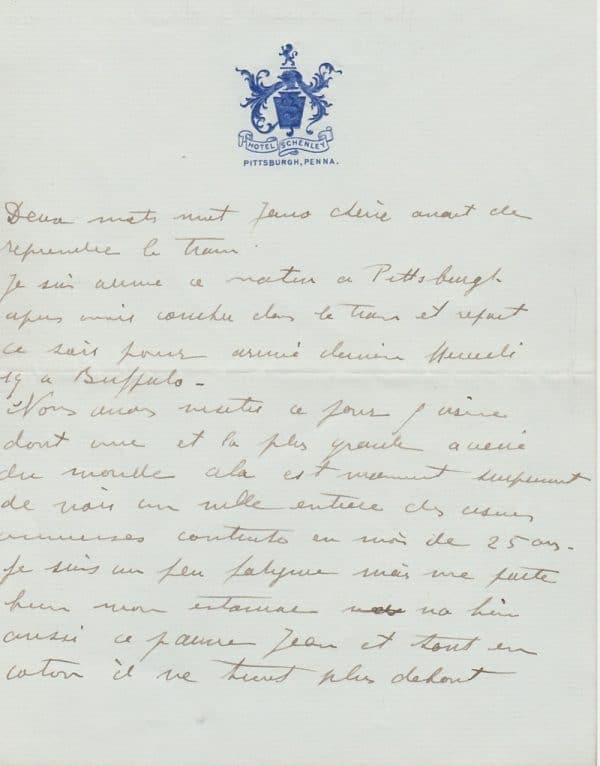 HOTEL SCHENLEY
PITTSBURGH, PENNA.
Deux mots avant de
reprendre le train.
Je suis arrivé ce matin a Pittsburgh
apres avoir couché dans le train et repart
ce soir pour arrivé demain
19 a Buffalo -
Nous avons visité ce jour usine
dont une et la plus grande acierie
du monde cela est vraiment surprenant
de voir un ville entiere des usines
immenses contruits en mois de 25 ans.
Je suis un peu fatigue mais me porte
bien mon estomac va bien
aussi ce pauvre Jean et tout en
coton il ne tient plus debout